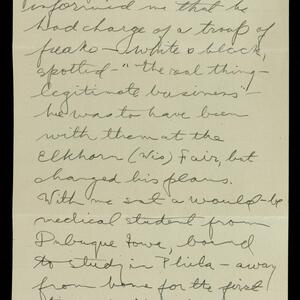 informed me that he
had charge of a troop of
freaks - white & black,
spotted - "the real thing -
legitimate business" -
he was to have been
with them at the
Elkhorn (Wis) Fair, but
changed his plans.
With me sat a would-be
medical student from
Dubuque Iowa, bound
to study in Phila - away
from home for the first